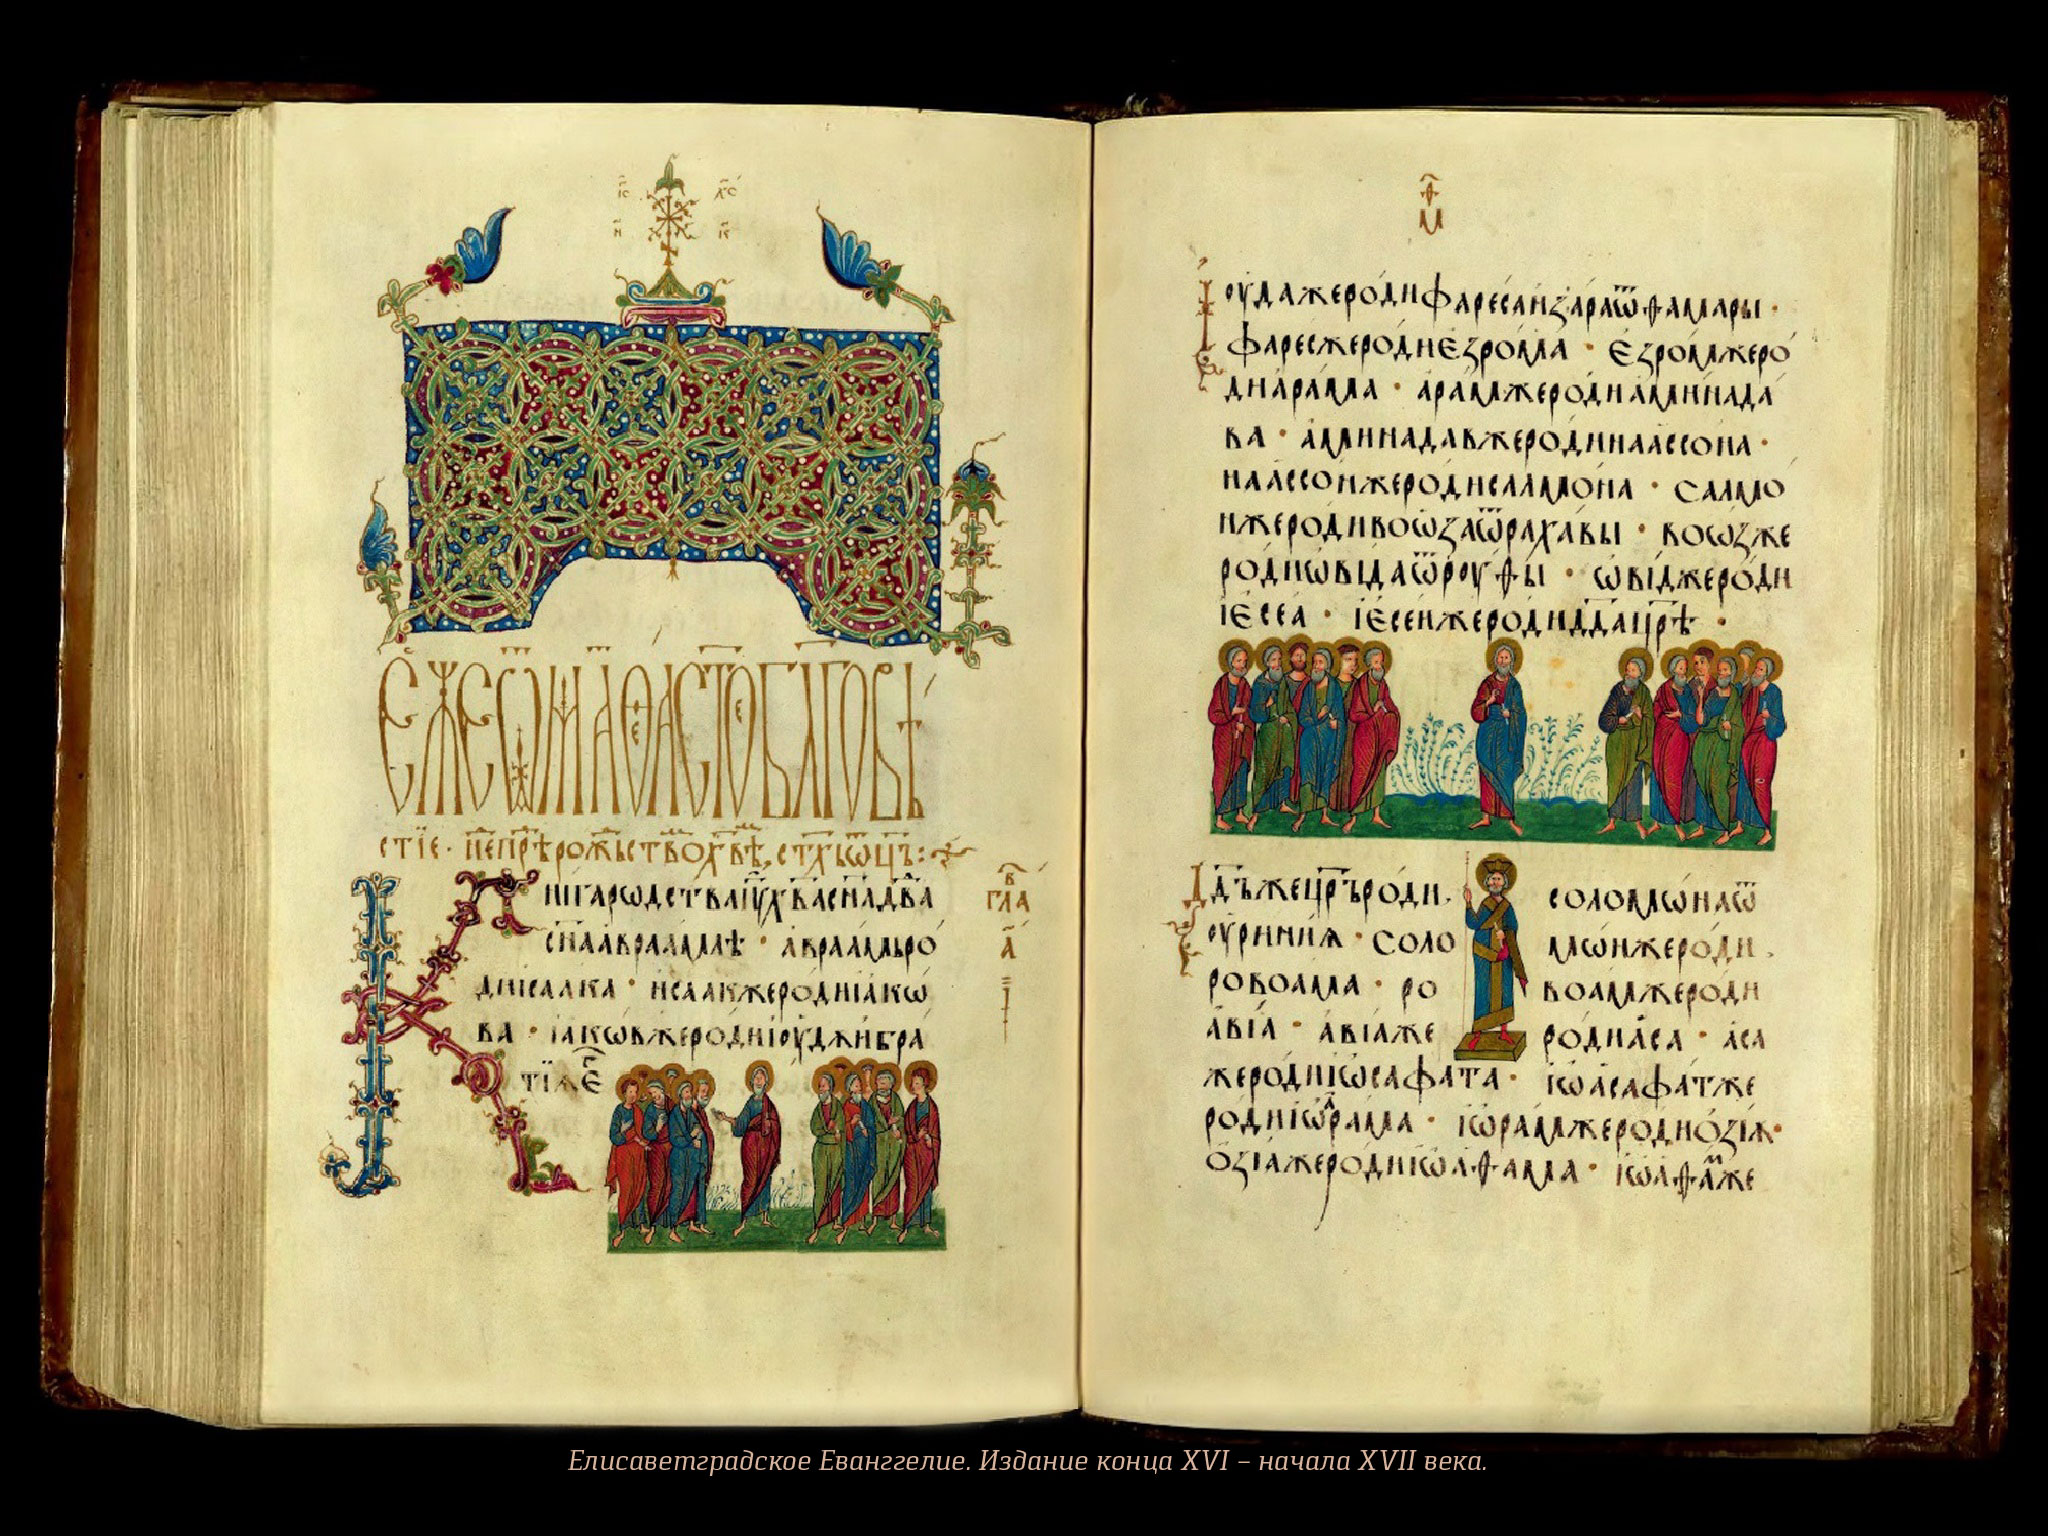 І҃С Х҃С
Н҃ І҃К
Е́ЖЕѾМАѲ́АСТО́ЕБЛГОВѢ́
стїе. н҃епр҃ѣрож҃ьствохв҃ѣ, стхы҃ѡц҃ъ:
Книгародстваі҃ухв҃асн҃ад҃ва
сн҃ааврааамлѣ · авраамъро́
диїсаака · исаакжеродиїакѡ́
ва · їаковжероди́їоудж҃ибра́
тїѧе҃
в҃
гла́
а҃
Ѳ҃
М
І́оудажеро́диФаре́саизара́ѿѳамары ·
Фаресжеро́диЕзро́ма · Езро́мжеро́
диара́ма · ара́мжеро́диамина́да́
ва · аминадавжеродинаассона ·
наассо́нжеро́дисалмо́на · салмо́
нжеро́дивоѡ́заѿраха́вы · воѡ́зже
ро́диѡви́даѿроуѳы · ѡви́джеро́ди
їессеа · їессе́йжеро́дид҃дацр҃ѣ ·
Д҃дъжецр҃ъроди.
соломѡ́наѿ
оури́нїѧ · соло
мѡ́нжеро́ди.
ровоама · ро
воамжероди
а́вїа · авїаже
родиа́са · аса
жеро́диїѡсафата · їѡасафатже
ро́диїѡра́ма · їѡра́мжеродио́зїѧ ·
О́зїажеро́диїѡаѳама · їѡаѳа́мже
Елисаветградское Еванггелие. Издание конца XVI – начала XVII века.